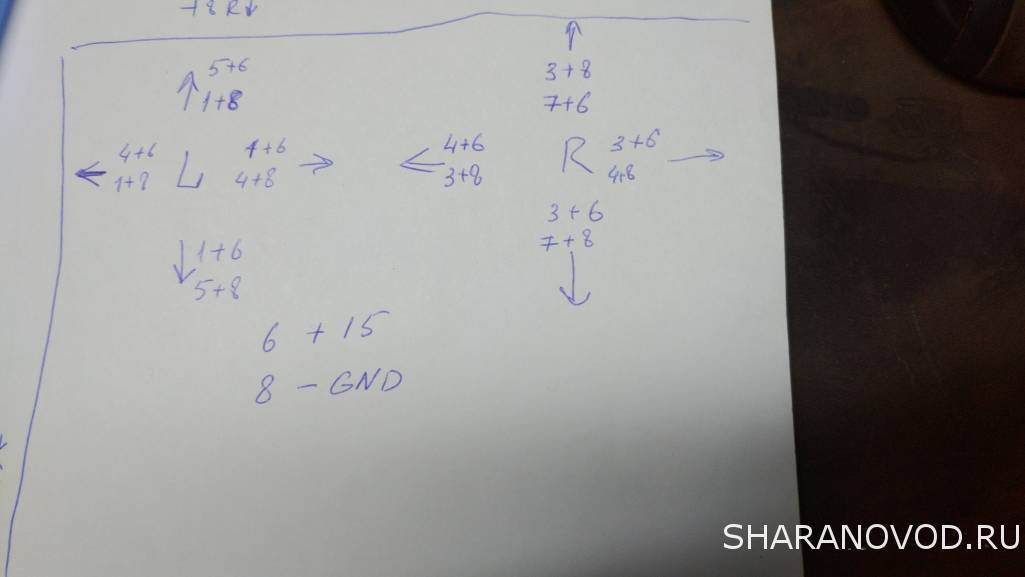 +8 R↓
5+6
1+8
↑
3+8
7+6
↑
4+6
1+8
← L
1+6
4+8
→
←
4+6
3+8
R
3+6
4+8
→
↓
1+6
5+8
3+6
7+8
↓
6 + 15
8 – GND
SHARANOVOD.RU